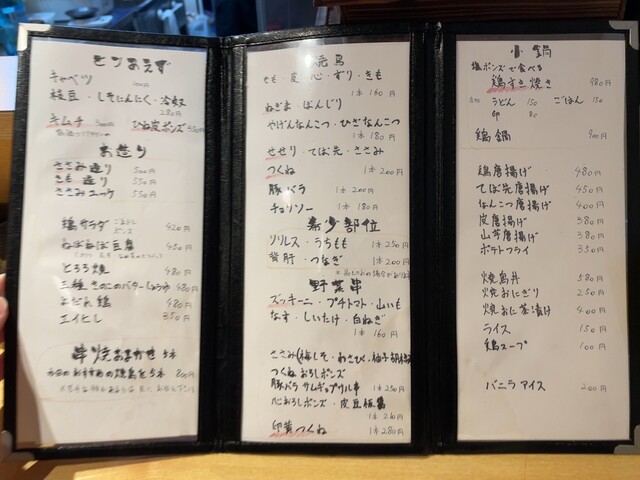 とりあえず
キャベツ
枝豆・しそにんにく・冷奴
250円
キムチ 300円 ひね皮ポンズ 350円
お造り
ささみ造り 500円
きも造り 550円
ささみユッケ 550円
鶏サラダ ごまドレ ポンズ 420円
ねばねば豆腐 450円
とろろ焼 480円
三種きのこのバターしょうゆ 480円
よだれ鶏 480円
エイヒレ 350円
串焼おまかせ5本
今日のおすすめの焼鳥を5本 800円
焼鳥
もも・皮・心・ずり・きも
1本 160円
ねぎま・ぼんじり
やげんなんこつ・ひざなんこつ
1本 180円
せせり・てば先・ささみ
つくね 1本 200円
豚バラ 1本 200円
チョリソー 1本 180円
希少部位
ソリレス・うちもも 1本 250円
背肝・つなぎ 1本 200円
※品切れの場合があります
野菜串
ズッキーニ・プチトマト・山いも
なす・しいたけ・白ねぎ
1本 160円
ささみ(梅しそ・わさび・柚子胡椒)
つくねおろしポンズ
豚バラサムギョプサル串 1本250円
心おろしポンズ・皮豆板醤
1本 210円
卵黄つくね 1本280円
小鍋
塩ポンズで食べる
鶏すき焼き 980円
追加 うどん 150 ごはん 150
卵 80
鶏鍋 900円
鶏唐揚げ 480円
てば先唐揚げ 450円
なんこつ唐揚げ 400円
皮唐揚げ 380円
山芋唐揚げ 380円
ポテトフライ 350円
焼鳥丼 580円
焼おにぎり 250円
焼おに茶漬け 400円
ライス 150円
鶏スープ 100円
バニラアイス 200円